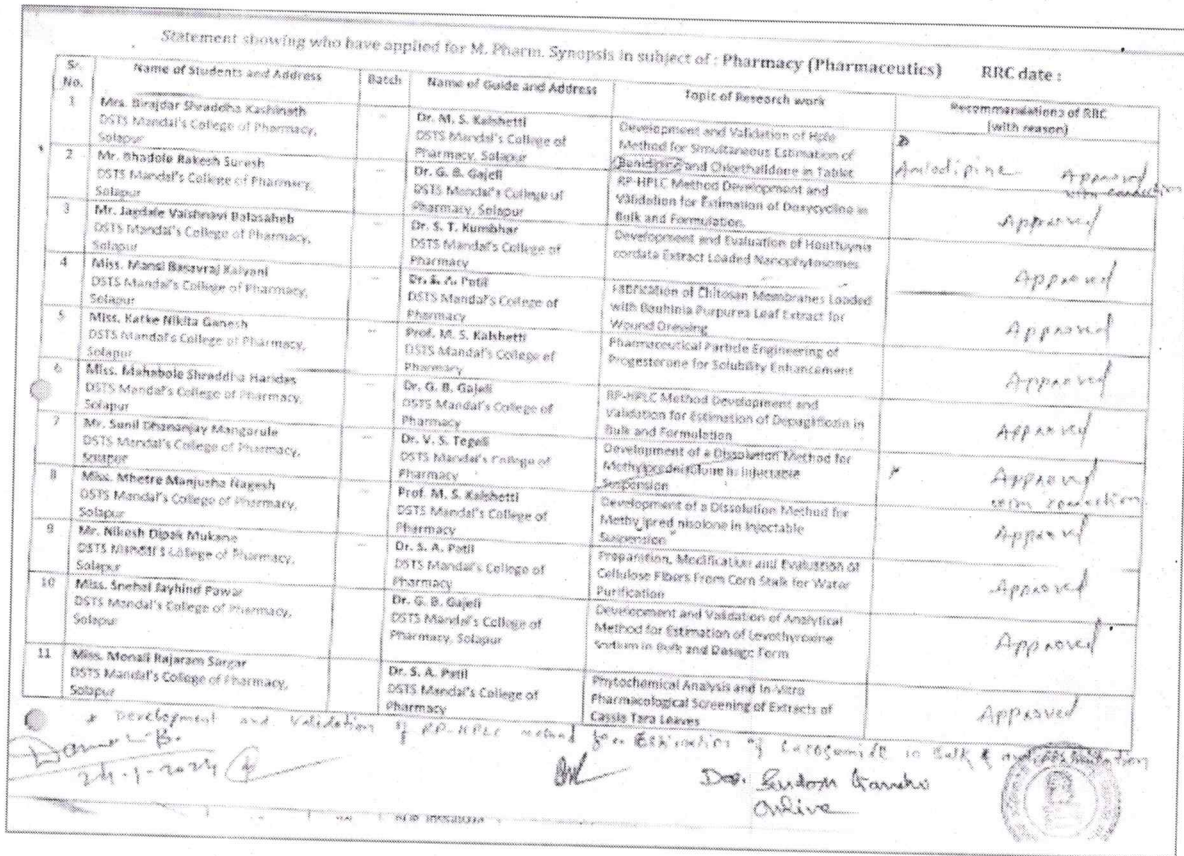 Statement showing who have applied for M. Pharm. Synopsis in subject of : Pharmacy (Pharmaceutics) RRC date :
Sr. No. Name of Students and Address Batch Name of Guide and Address Topic of Research work Recommendations of RRC (with reason)
1 Mrs. Birajdar Shraddha Kashinath
DSTS Mandal's College of Pharmacy,
Solapur
–
Dr. M. S. Kalshetti
DSTS Mandal's College of
Pharmacy, Solapur
Development and Validation of Hplc
Method for Simultaneous Estimation of
Benidipine and Chlorthalidone in Tablet
Amlodipine Approved
with correction
2 Mr. Bhadole Rakesh Suresh
DSTS Mandal's College of Pharmacy,
Solapur
–
Dr. G. B. Gajeli
DSTS Mandal's College of
Pharmacy, Solapur
RP-HPLC Method Development and
Validation for Estimation of Doxycycline in
Bulk and Formulation.
Approved
3 Mr. Jagdale Vaishnavi Balasaheb
DSTS Mandal's College of Pharmacy,
Solapur
–
Dr. S. T. Kumbhar
DSTS Mandal's College of
Pharmacy
Development and Evaluation of Houttuynia
cordata Extract Loaded Nanophytosomes
Approved
4 Miss. Mansi Basavraj Kalyani
DSTS Mandal's College of Pharmacy,
Solapur
–
Dr. S. A. Patil
DSTS Mandal's College of
Pharmacy
Fabrication of Chitosan Membranes Loaded
with Bauhinia Purpurea Leaf Extract for
Wound Dressing
Approved
5 Miss. Karke Nikita Ganesh
DSTS Mandal's College of Pharmacy,
Solapur
–
Prof. M. S. Kalshetti
DSTS Mandal's College of
Pharmacy
Pharmaceutical Particle Engineering of
Progesterone for Solubility Enhancement
Approved
6 Miss. Mahabole Shraddha Haridas
DSTS Mandal's College of Pharmacy,
Solapur
Dr. G. B. Gajeli
DSTS Mandal's College of
Pharmacy
RP-HPLC Method Development and
Validation for Estimation of Depugliflozin in
Bulk and Formulation
Approved
7 Mr. Sunil Dhananjay Mangarule
DSTS Mandal's College of Pharmacy,
Solapur
–
Dr. V. S. Tegeli
DSTS Mandal's College of
Pharmacy
Development of a Dissolution Method for
Methylprednisolone in Injectable
Suspension
* Approved
with correction
8 Miss. Mhetre Manjusha Nagesh
DSTS Mandal's College of Pharmacy,
Solapur
–
Prof. M. S. Kalshetti
DSTS Mandal's College of
Pharmacy
Development of a Dissolution Method for
Methylprednisolone in Injectable
Suspension
Approved
9 Mr. Nikesh Dipak Mukane
DSTS Mandal's College of Pharmacy,
Solapur
–
Dr. S. A. Patil
DSTS Mandal's College of
Pharmacy
Preparation, Modification and Evaluation of
Cellulose Fibers From Corn Stalk for Water
Purification
Approved
10 Miss. Snehal Jayhind Pawar
DSTS Mandal's College of Pharmacy,
Solapur
Dr. G. B. Gajeli
DSTS Mandal's College of
Pharmacy, Solapur
Development and Validation of Analytical
Method for Estimation of Levothyroxine
Sodium in Bulk and Dosage Form
Approved
11 Miss. Monali Rajaram Sargar
DSTS Mandal's College of Pharmacy,
Solapur
Dr. S. A. Patil
DSTS Mandal's College of
Pharmacy
Phytochemical Analysis and In-Vitro
Pharmacological Screening of Extracts of
Cassia Tara Leaves
Approved
* Development and Validation of RP-HPLC method for Estimation of Lacosamide in Bulk &
24-1-2024
Online